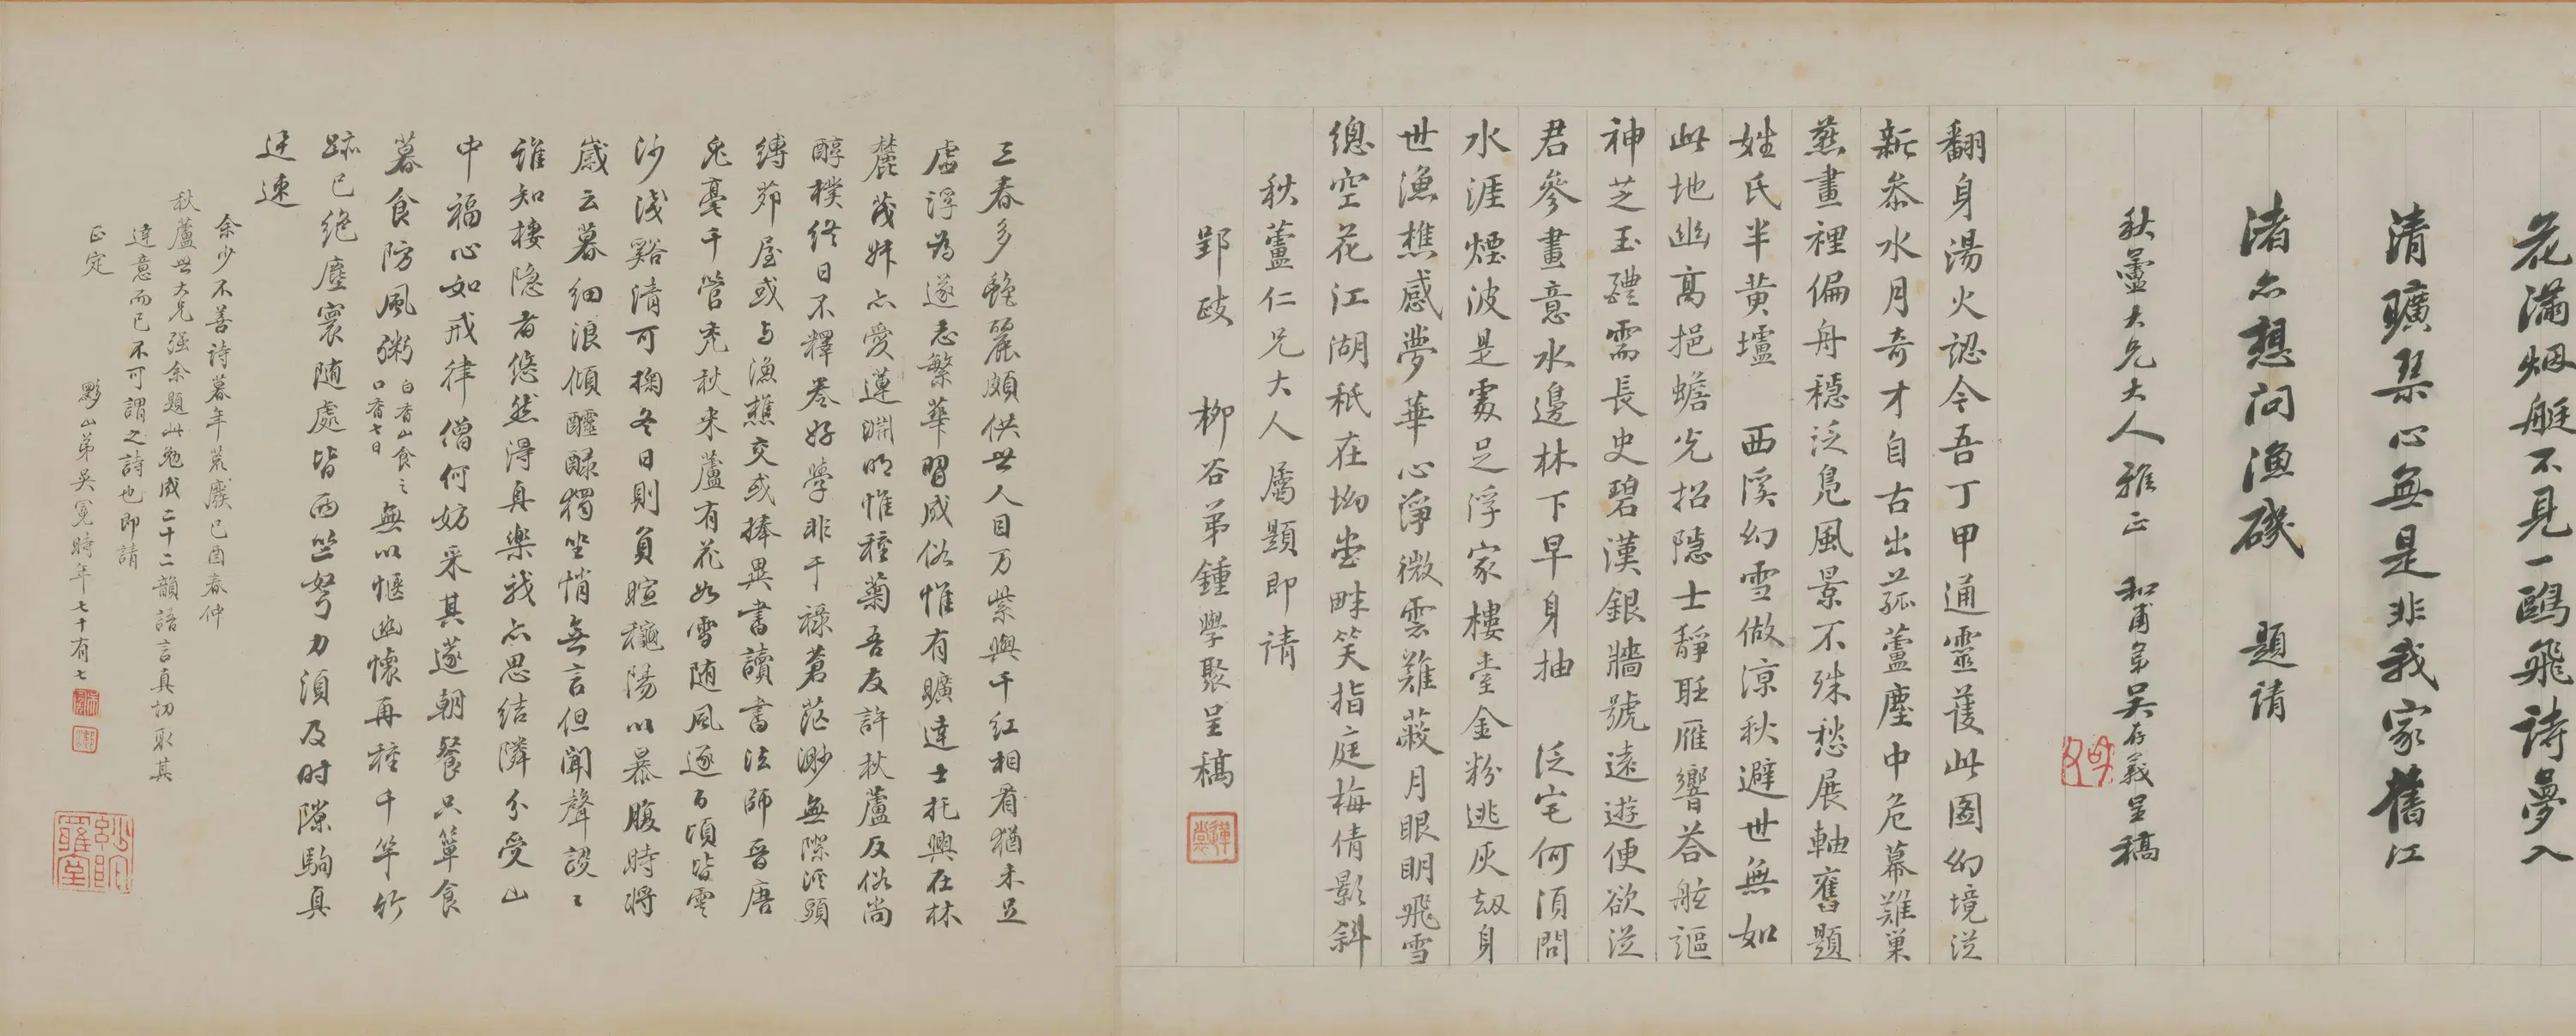 花滿烟艇不見一鷗飛詩夢入
清曠槩心無是非我家舊江
渚亦想問漁磯　題请
秋蘆大兄大人雅正　和甫弟吴存義呈稿
翻身湯火認今吾丁甲通靈護此圖幻境從
新叅水月奇才自古出菰蘆塵中危幕難巢
燕畫裡偏舟穩泛鳧風景不殊愁展軸舊題
姓氏半黄壚　西溪幻雪做涼秋避世無如
此地幽高挹蟾光招隐士靜聽雁響荅舷謳
神芝玉醴需長史碧漢銀牆號遠遊便欲從
君參畫意水邊林下早身抽　泛宅何須問
水涯煙波是處足浮家樓臺金粉逃灰劫身
世漁樵感夢華心淨微雲難蔽月眼明飛雪
總空花江湖秖在坳堂畔笑指庭梅倩影斜
秋蘆仁兄大人屬題即请
郢政　柳谷弟鍾學聚呈稿
三春多艷麗頗供世人目万紫與千红相看猶未足
虛浮為遂志繁華習成俗惟有曠達士托興在林
麓茂姝亦愛蓮淵明惟種菊吾友許秋蘆反俗尚
醇樸终日不釋卷好學非干祿蒼茫渺無際淫頭
縛茆屋或与漁樵交或捧異書讀書法師晉唐
兎毫千管禿秋来蘆有花如雪随風逐百頃皆雲
沙浅谿清可掬冬日則負暄秾陽以暴腹時將
歲云暮细浪傾醽醁獨坐悄無言但聞聲謖〻
誰知棲隐者悠然得真樂我亦思结隣分受山
中福心如戒律僧何妨采其蓤朝餐只簞食
暮食防風粥白香山食之口香七日無以愜幽懷再種千竿竹
跡已绝塵寰随處皆西竺努力須及时隙駒真
迅速
余少不善诗暮年荒廢已酉春仲
秋蘆世大兄强余題此勉成二十二韻語言真切取其
達意而已不可謂之詩也即請
正定
黟山弟吴冕時年七十有七